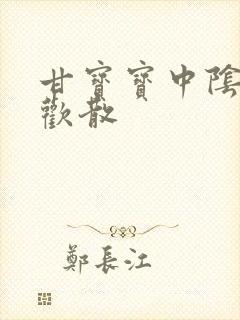 甘寶寶中陰
歡散
鄭長江